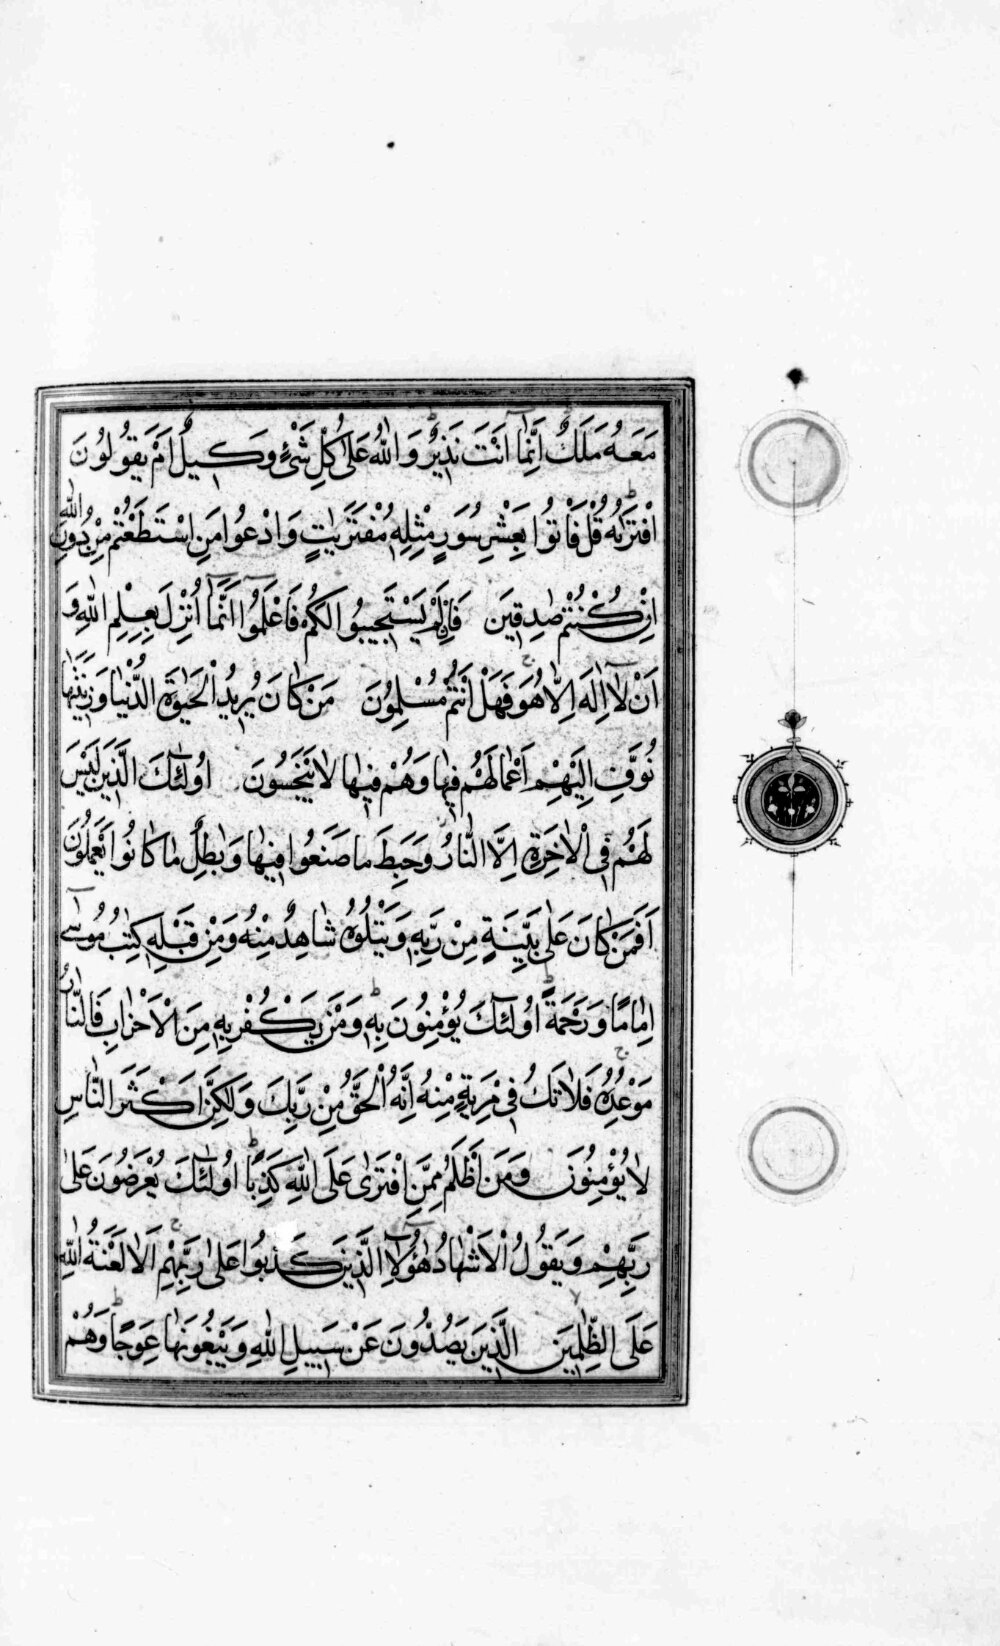 مَعَهُ مَلَكٌ اِنَّمَا اَنْتَ نَذِيرٌ وَاللّٰهُ عَلٰى كُلِّ شَىْءٍ وَكِيلٌ اَمْ يَقُولُونَ
افْتَرٰيهُ قُلْ فَأْتُوا بِعَشْرِ سُوَرٍ مِثْلِهِ مُفْتَرَيٰتٍ وَادْعُوا مَنِ اسْتَطَعْتُمْ مِنْ دُونِ اللّٰهِ
اِنْ كُنْتُمْ صٰدِقِينَ فَاِلَّمْ يَسْتَجِيبُوا لَكُمْ فَاعْلَمُوا اَنَّمَا اُنْزِلَ بِعِلْمِ اللّٰهِ وَ
اَنْ لَا اِلٰهَ اِلَّا هُوَ فَهَلْ اَنْتُمْ مُسْلِمُونَ مَنْ كَانَ يُرِيدُ الْحَيٰوةَ الدُّنْيَا وَزِينَتَهَا
نُوَفِّ اِلَيْهِمْ اَعْمَالَهُمْ فِيهَا وَهُمْ فِيهَا لَا يُبْخَسُونَ اُولٰئِكَ الَّذِينَ لَيْسَ
لَهُمْ فِى الْاٰخِرَةِ اِلَّا النَّارُ وَحَبِطَ مَا صَنَعُوا فِيهَا وَبَاطِلٌ مَا كَانُوا يَعْمَلُونَ
اَفَمَنْ كَانَ عَلٰى بَيِّنَةٍ مِنْ رَبِّهِ وَيَتْلُوهُ شَاهِدٌ مِنْهُ وَمِنْ قَبْلِهِ كِتٰبُ مُوسٰى
اِمَامًا وَرَحْمَةً اُولٰئِكَ يُؤْمِنُونَ بِهِ وَمَنْ يَكْفُرْ بِهِ مِنَ الْاَحْزَابِ فَالنَّارُ
مَوْعِدُهُ فَلَا تَكُ فِى مِرْيَةٍ مِنْهُ اِنَّهُ الْحَقُّ مِنْ رَبِّكَ وَلٰكِنَّ اَكْثَرَ النَّاسِ
لَا يُؤْمِنُونَ وَمَنْ اَظْلَمُ مِمَّنِ افْتَرٰى عَلَى اللّٰهِ كَذِبًا اُولٰئِكَ يُعْرَضُونَ عَلٰى
رَبِّهِمْ وَيَقُولُ الْاَشْهَادُ هٰؤُلَاءِ الَّذِينَ كَذَبُوا عَلٰى رَبِّهِمْ اَلَا لَعْنَةُ اللّٰهِ
عَلَى الظّٰلِمِينَ الَّذِينَ يَصُدُّونَ عَنْ سَبِيلِ اللّٰهِ وَيَبْغُونَهَا عِوَجًا وَهُمْ